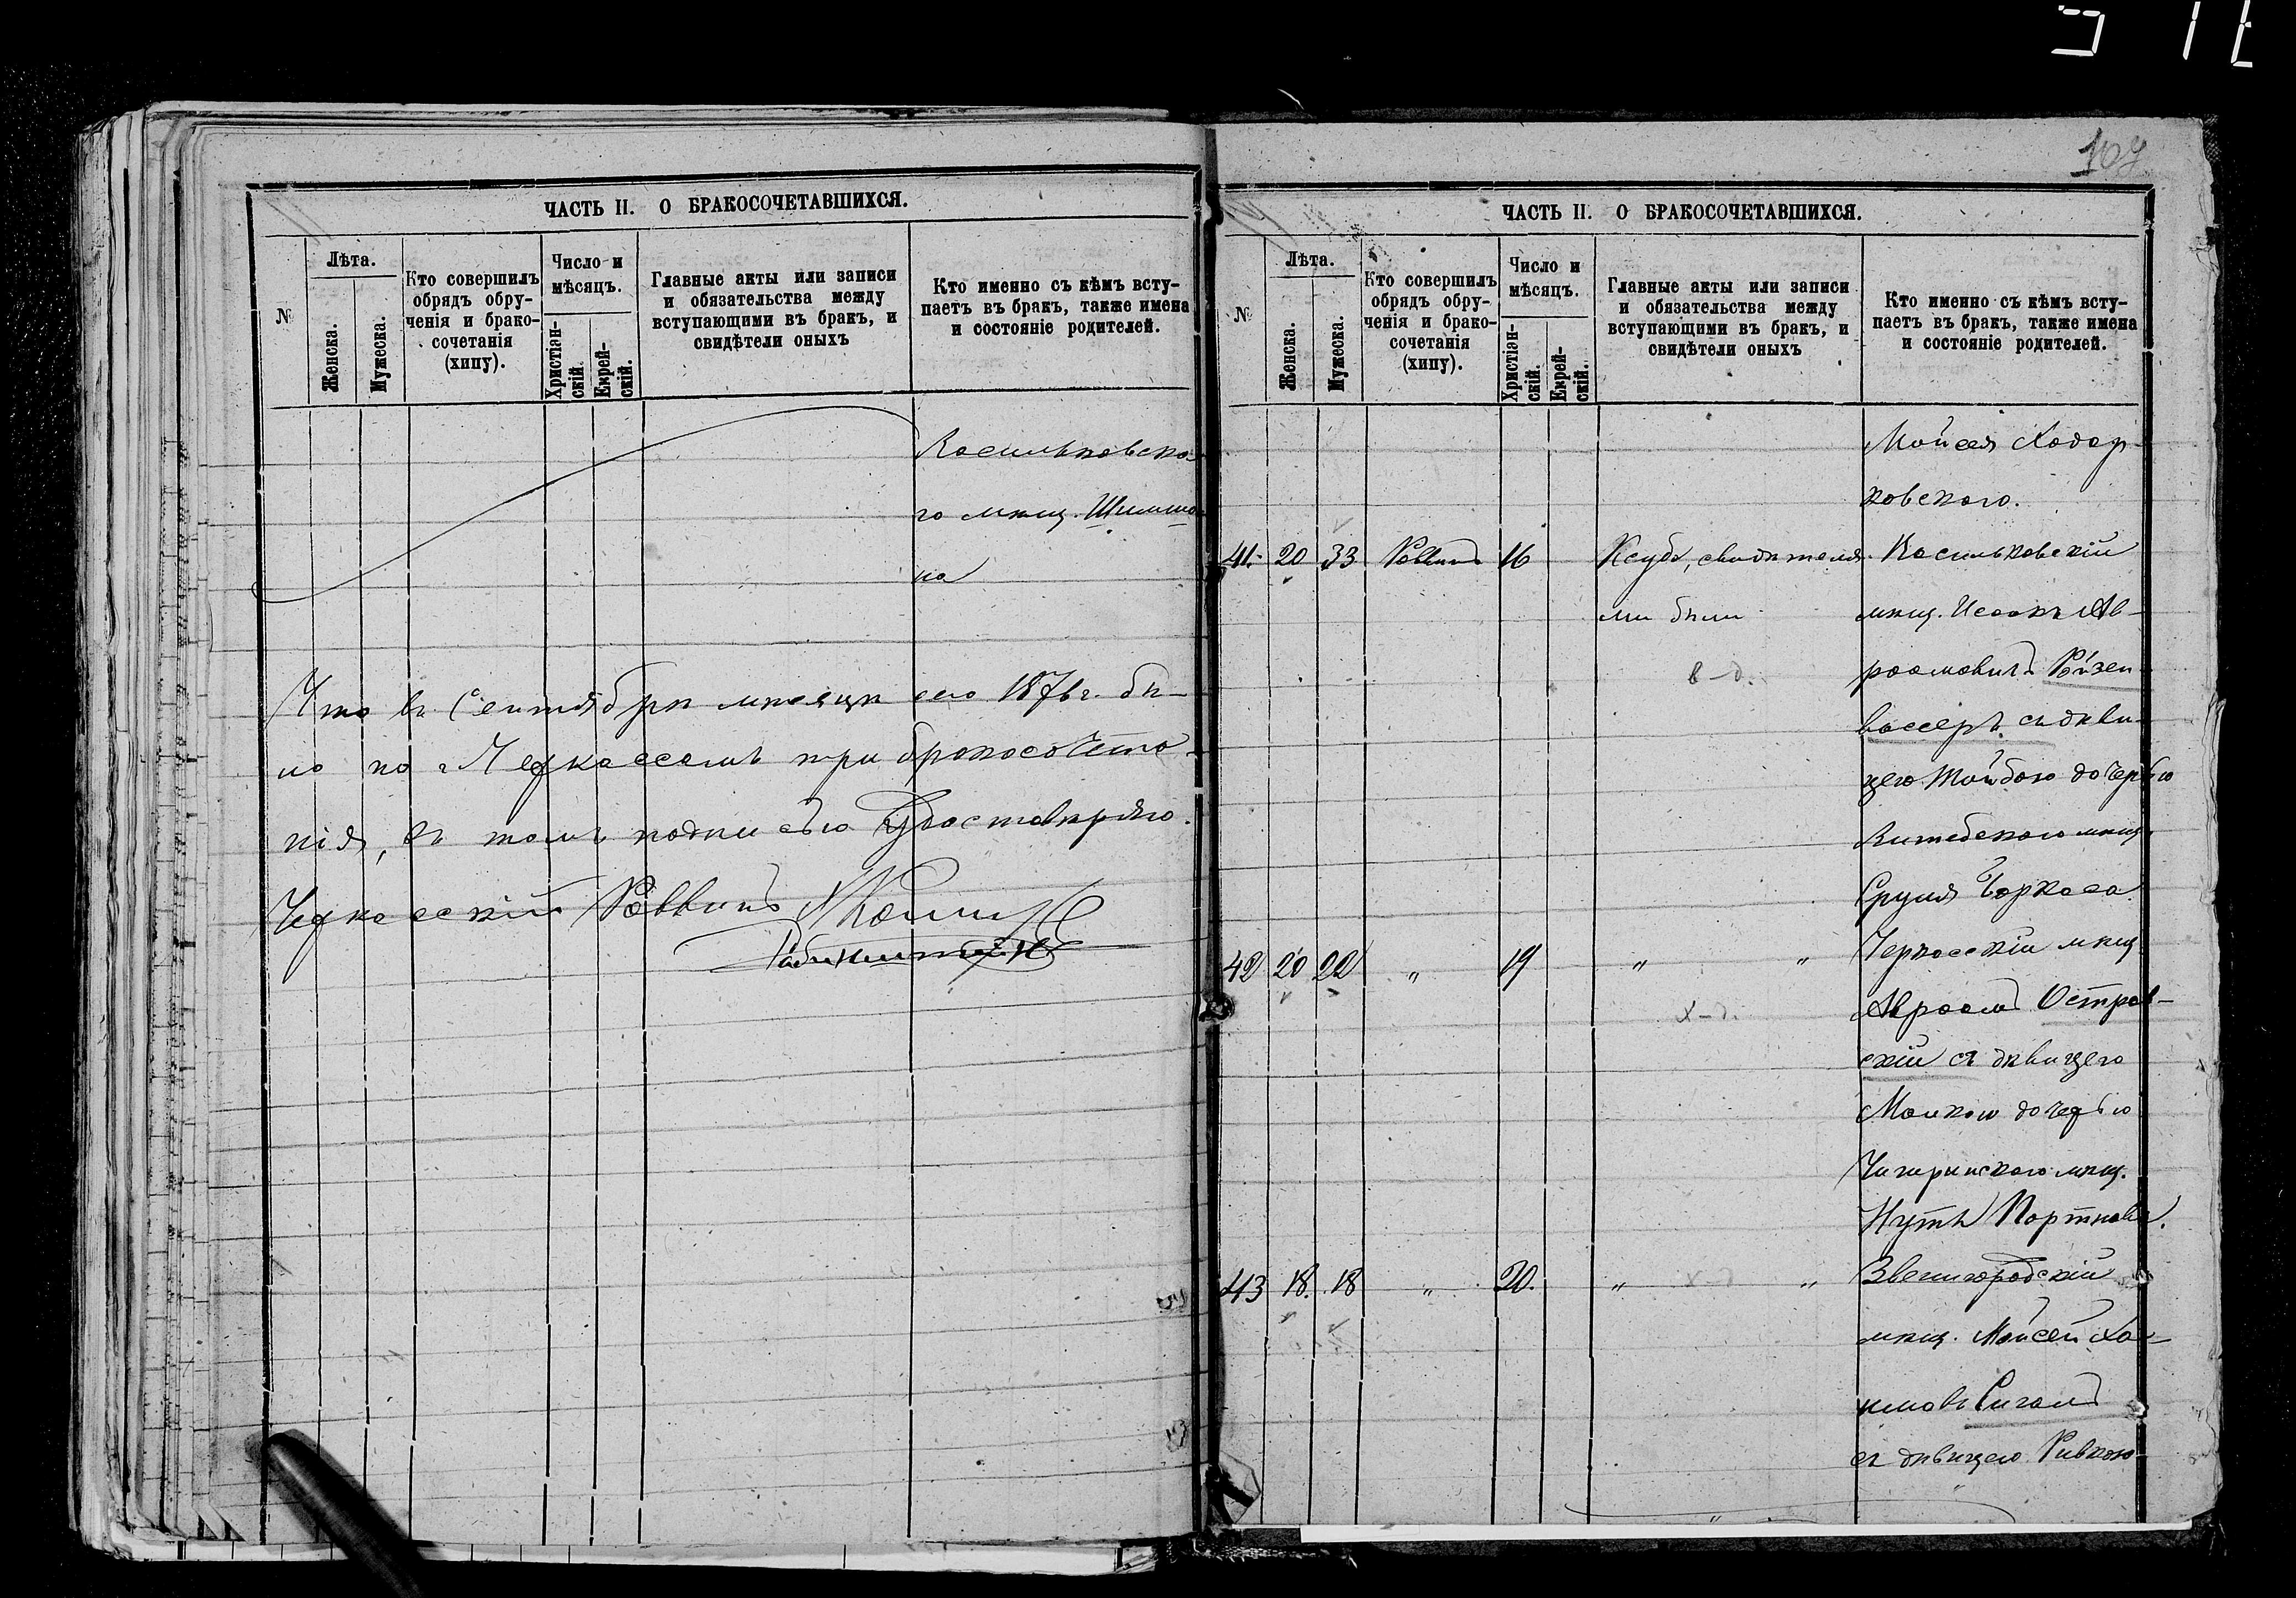 107
ЧАСТЬ II. О БРАКОСОЧЕТАВШИХСЯ.
№
Лѣта.
Женска.
Мужеска.
Кто совершилъ
обрядъ обру-
ченія и брако-
сочетанія
(хипу).
Число и
мѣсяцъ.
Христіан-
скій.
Еврей-
скій.
Главные акты или записи
и обязательства между
вступающими въ бракъ, и
свидѣтели оныхъ
Кто именно съ кѣмъ всту-
паетъ въ бракъ, также имена
и состояніе родителей.
Васильковска-
го мѣщ. Шимшо-
на
Что въ Сентябрѣ мѣсяцѣ сего 1876 г. бы-
ло по г. Черкассамъ три бракосочета-
нія, въ томъ подписью удостовѣряю.
Черкасскій Раввинъ
ЧАСТЬ II. О БРАКОСОЧЕТАВШИХСЯ.
№
Лѣта.
Женска.
Мужеска.
Кто совершилъ
обрядъ обру-
ченія и брако-
сочетанія
(хипу).
Число и
мѣсяцъ.
Христіан-
скій.
Еврей-
скій.
Главные акты или записи
и обязательства между
вступающими въ бракъ, и
свидѣтели оныхъ
Кто именно съ кѣмъ всту-
паетъ въ бракъ, также имена
и состояніе родителей.
Мойсея Ходор-
ковского.
41. 20 33 Раввинъ 16 Ксуба, свидѣтеля- Васильковскій
ми были мѣщ. Исаакъ Ав-
в-д. раамовичъ Ройзен-
вассеръ съ дѣви-
цею Тойбою дочерью
Витебского мѣщ.
Сруля Чаркаса
42 20 22 „ 19 „ „ Черкасскій мѣщ.
х-д. Авраамъ Остров-
скій съ дѣвицею
Малкою дочерью
Чигиринского мѣщ.
Нутъ Портнова.
43 18. 18 „ 20. „ х-д „ Звенигородскій
мѣщ. Мойсей Ха-
имовъ Сигалъ
съ дѣвицею Ривкою